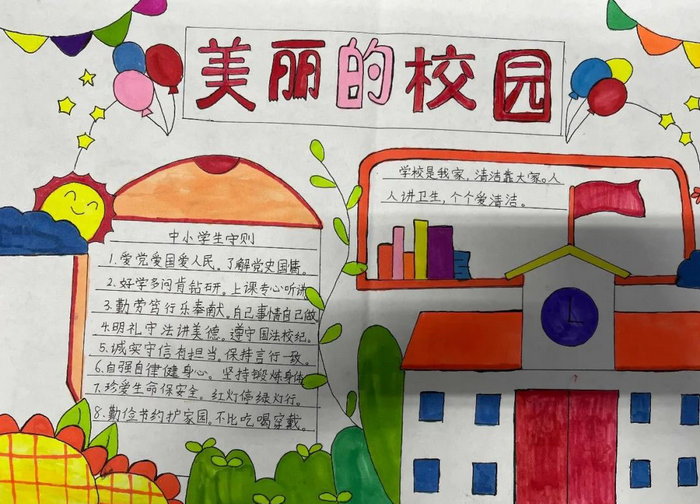 美丽的校园
学校是我家，清洁靠大家。人
人讲卫生，个个爱清洁。
中小学生守则
1.爱党爱国爱人民。了解党史国情。
2.好学多问肯钻研。上课专心听讲
3.勤劳笃行乐奉献。自己事情自己做
4.明礼守法讲美德。遵守国法校纪。
5.诚实守信有担当。保持言行一致。
6.自强自律健身心。坚持锻炼身体
7.珍爱生命保安全。红灯停绿灯行。
8.勤俭节约护家园。不比吃喝穿戴。